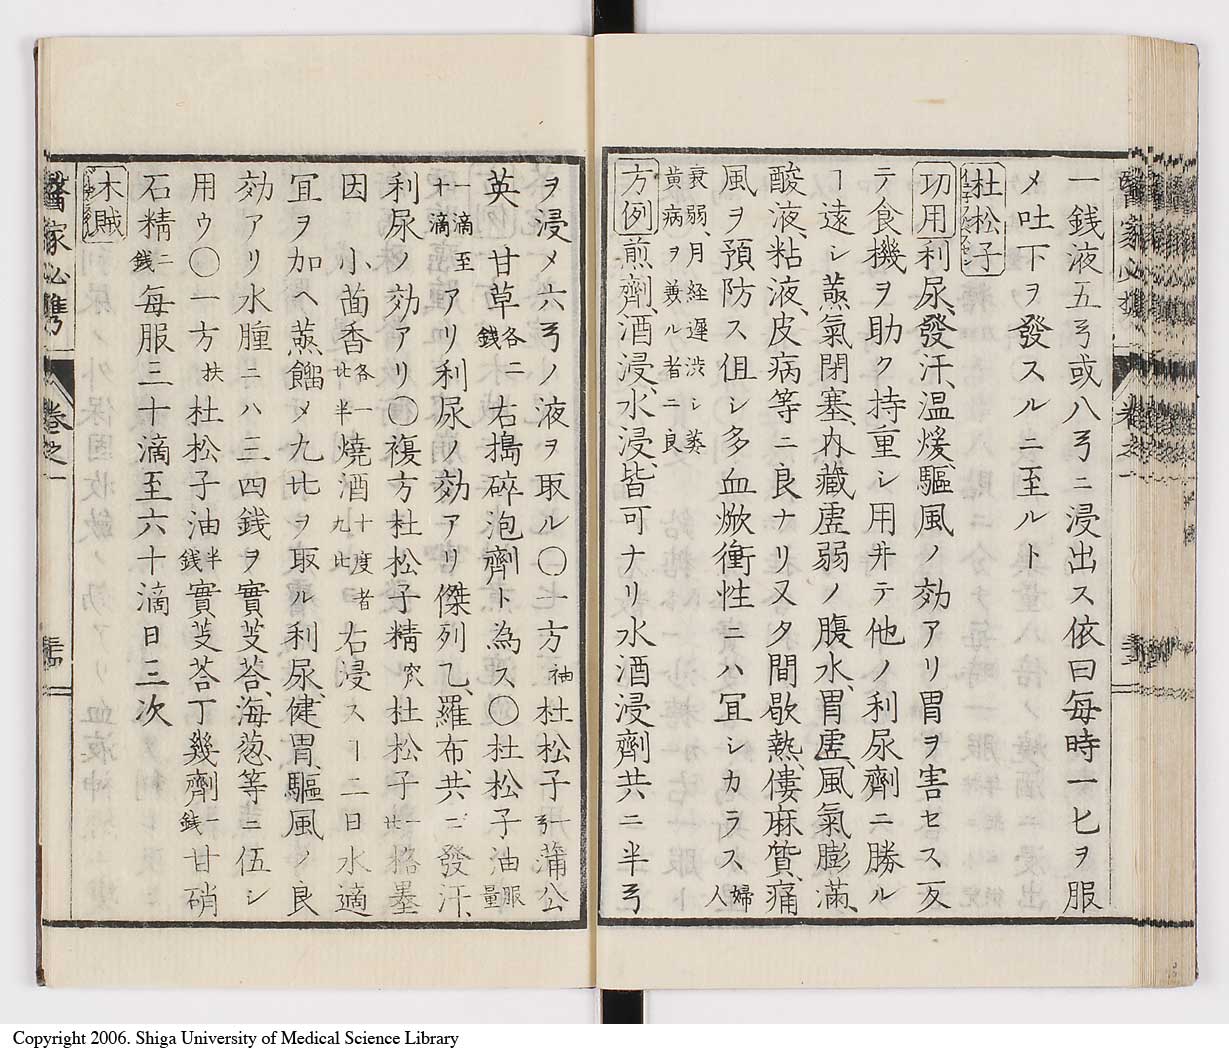 一銭液五弓或八弓ニ浸出ス依曰毎時一匕ヲ服
メ吐下ヲ發スルニ至ルト
杜松子
功用 利尿、發汗、温煖、驅風ノ効アリ胃ヲ害セス反
テ食機ヲ助ク持重シ用井テ他ノ利尿劑ニ勝ル
ヿ遠シ蒸氣閉塞、内藏虗弱ノ腹水、胃虗、風氣膨滿、
酸液、粘液、皮病等ニ良ナリ又夕間歇熱、僂麻質、痛
風ヲ預防ス但シ多血焮衝性ニハ宜シカラス 婦人
衰弱、月経遅渋シ萎
黄病ヲ兼ル者ニ良
方例 煎劑、酒浸、水浸、皆可ナリ水酒浸劑共ニ半弓
ヲ浸メ六弓ノ液ヲ取ル〇一方 杜松子 弓 蒲公
英 甘草 各二銭 右搗碎泡劑ト為ス〇杜松子油 服量
一滴至十滴 アリ利尿ノ効アリ傑列乙、羅布、共ニ發汗、
利尿ノ効アリ〇複方杜松子精 杜松子 一 格墨
因 小茴香 各一 半 焼酒 十度者九 右浸スヿ二日水適
宜ヲ加ヘ蒸餾メ九比ヲ取ル利尿、健胃、驅風ノ良
効アリ水腫ニハ三四銭ヲ實芰荅、海葱等ニ伍シ
用ウ〇一方 扶 杜松子油 半銭 實芰荅丁幾劑 一銭 甘硝
石精 二銭 毎服三十滴至六十滴日三次
木賊
醫家必携 巻之一
醫家必携 巻之一
Copyright 2006. Shiga University of Medical Science Library